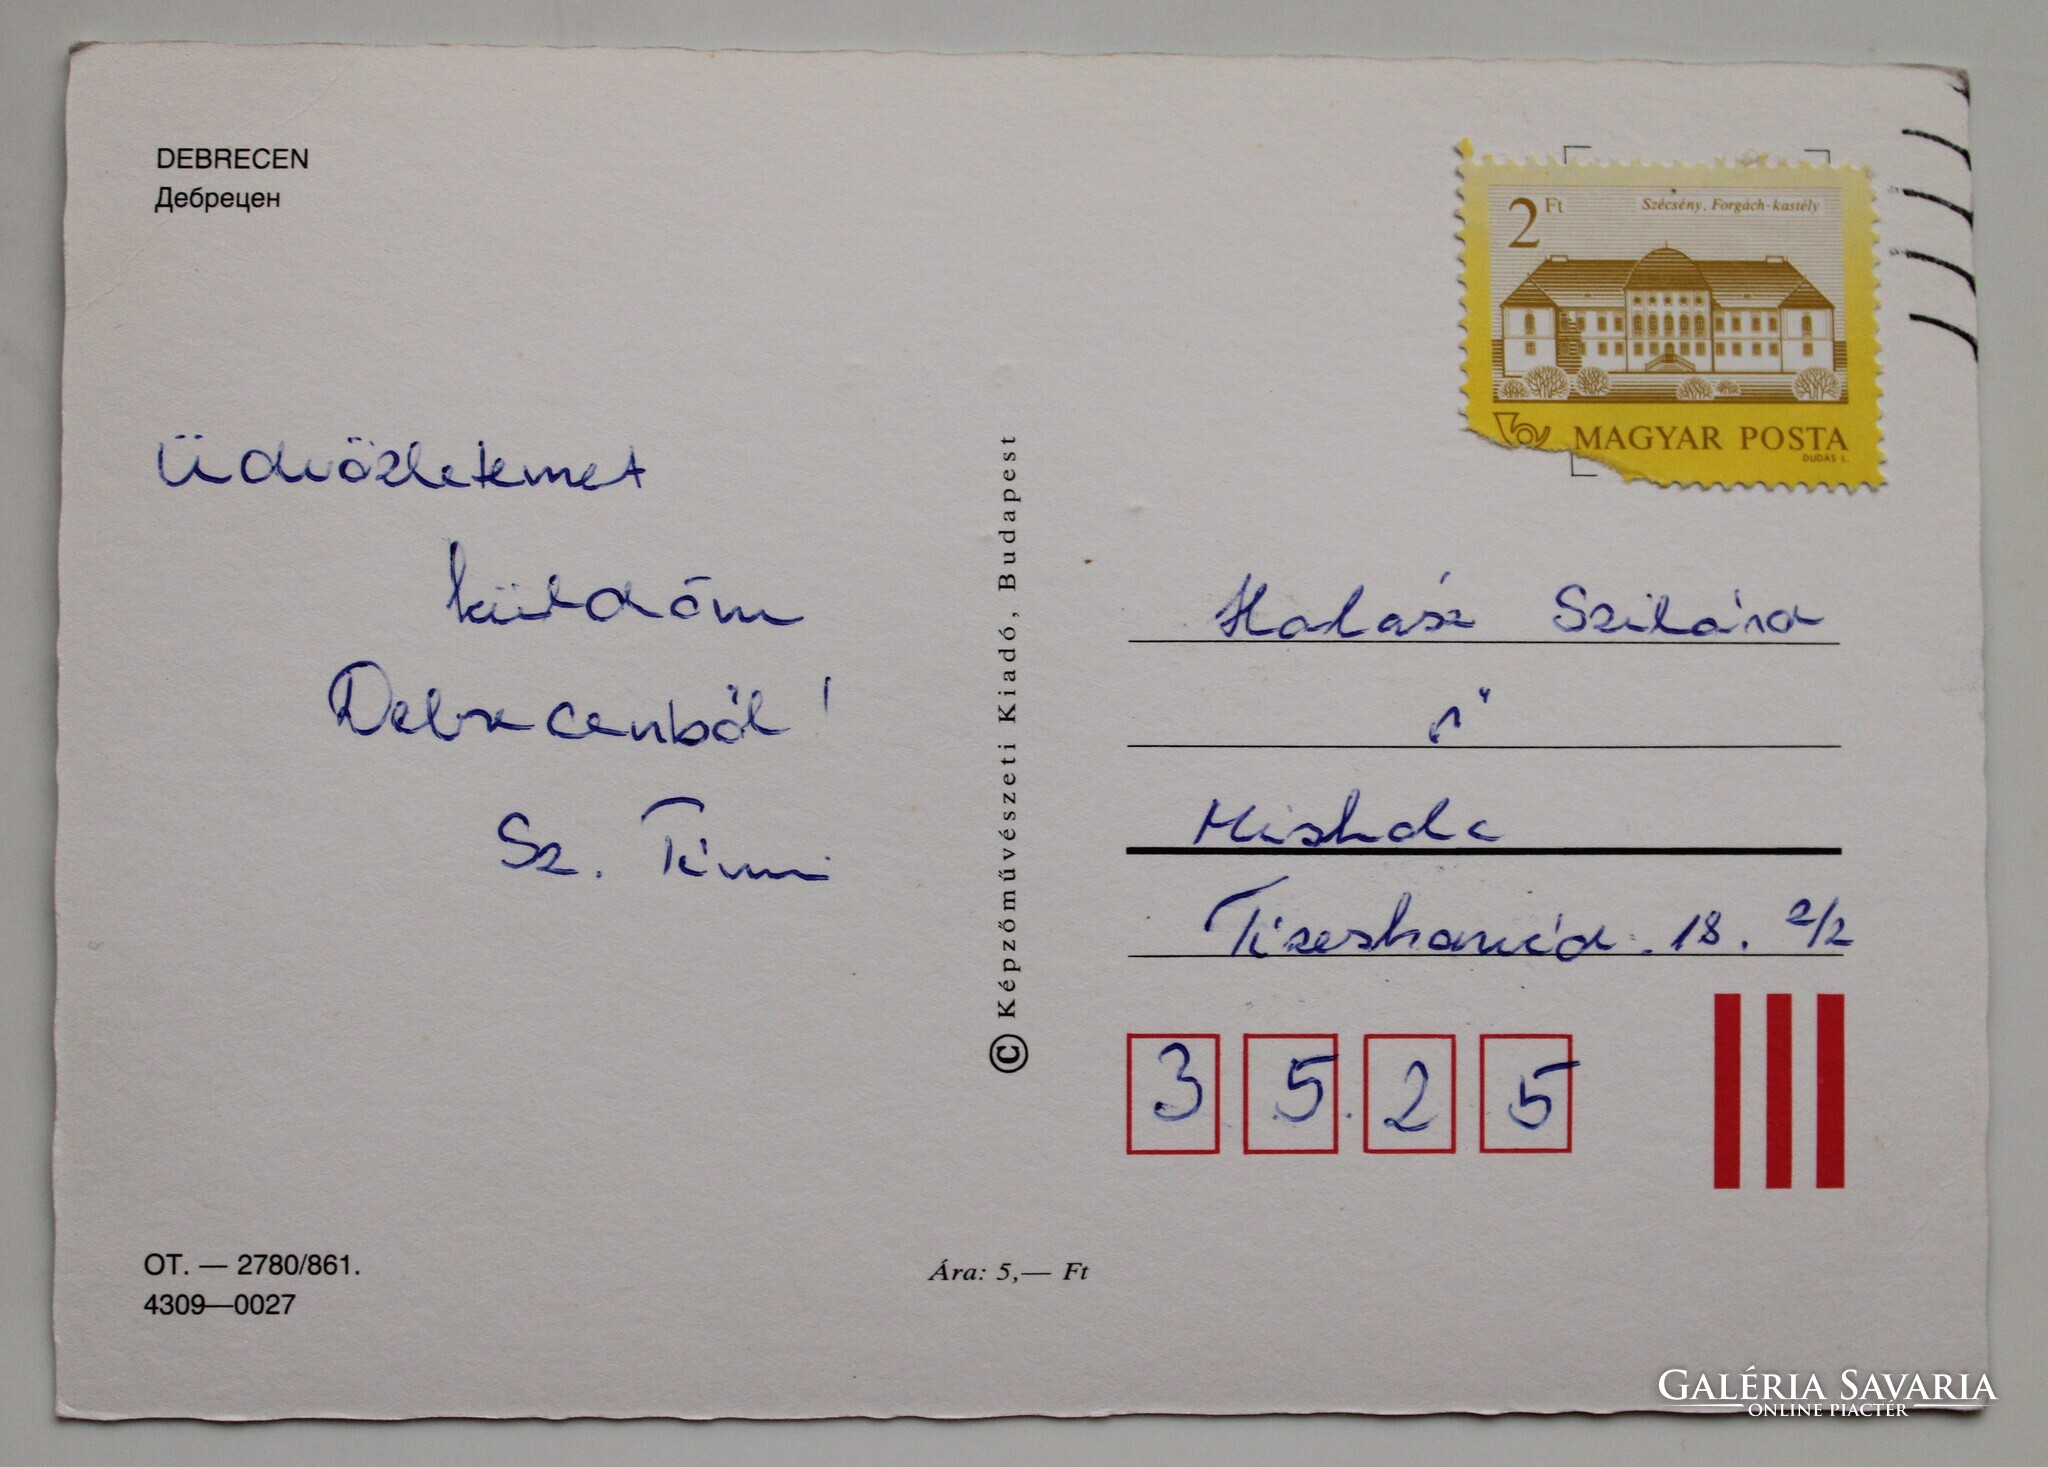 DEBRECEN
Дебрецен
Üdvözletemet
küldöm
Debrecenből!
Sz. Timi
OT. — 2780/861.
4309—0027
Ára: 5,— Ft
© Képzőművészeti Kiadó, Budapest
2 Ft
Szécsény, Forgách-kastély
MAGYAR POSTA
DUDÁS L.
Halász Szilárd
Miskolc
18. 2/2
3 5 2 5
GALÉRIA SAVARIA
ONLINE PIACTÉR